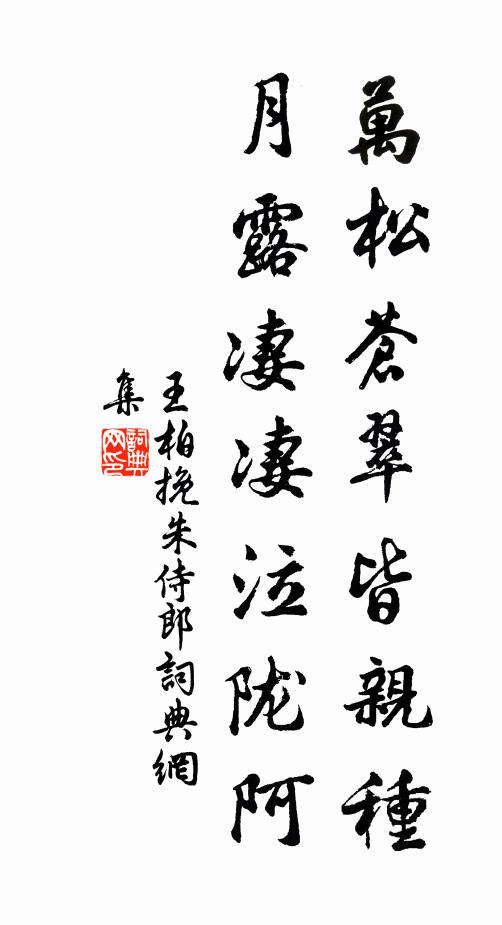 萬松蒼翠皆親種
月露凄凄泣陇阿
王柏挽朱侍郎詞典網
集
詞典网印